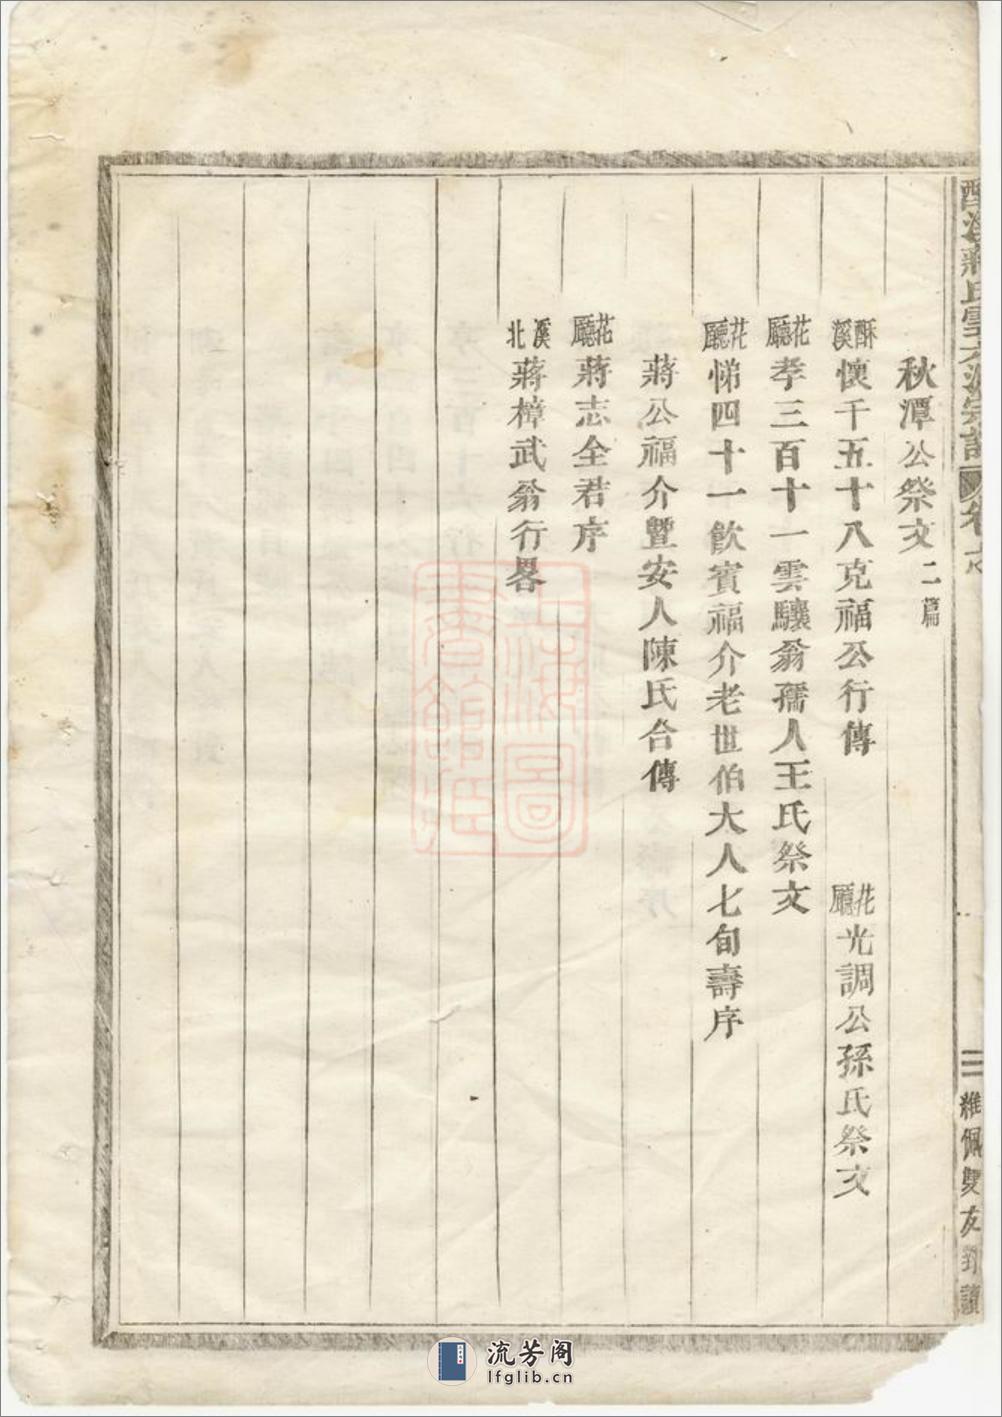 秋潭公祭文 二篇
酥溪 懷千五十八克福公行傳 花廳 光調公孫氏祭文
花廳 孝三百十一雲驤翁孺人王氏祭文
花廳 悌四十一飲賓福介老世伯大人七旬壽序
蔣公福介暨安人陳氏合傳
花廳 蔣志全君序
溪北 蔣樟武翁行畧
三
維佩雙友
上海圖書館藏
流芳阁
lfglib.cn